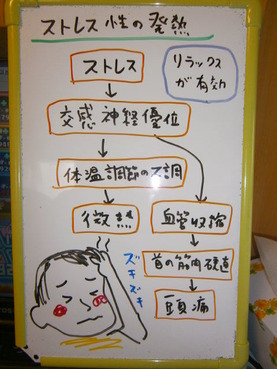 ストレス性の発熱
ストレス
リラックス
が有効
交感神経優位
体温調節の不調
微熱
血管収縮
首の筋肉硬直
頭痛
ズキズキ